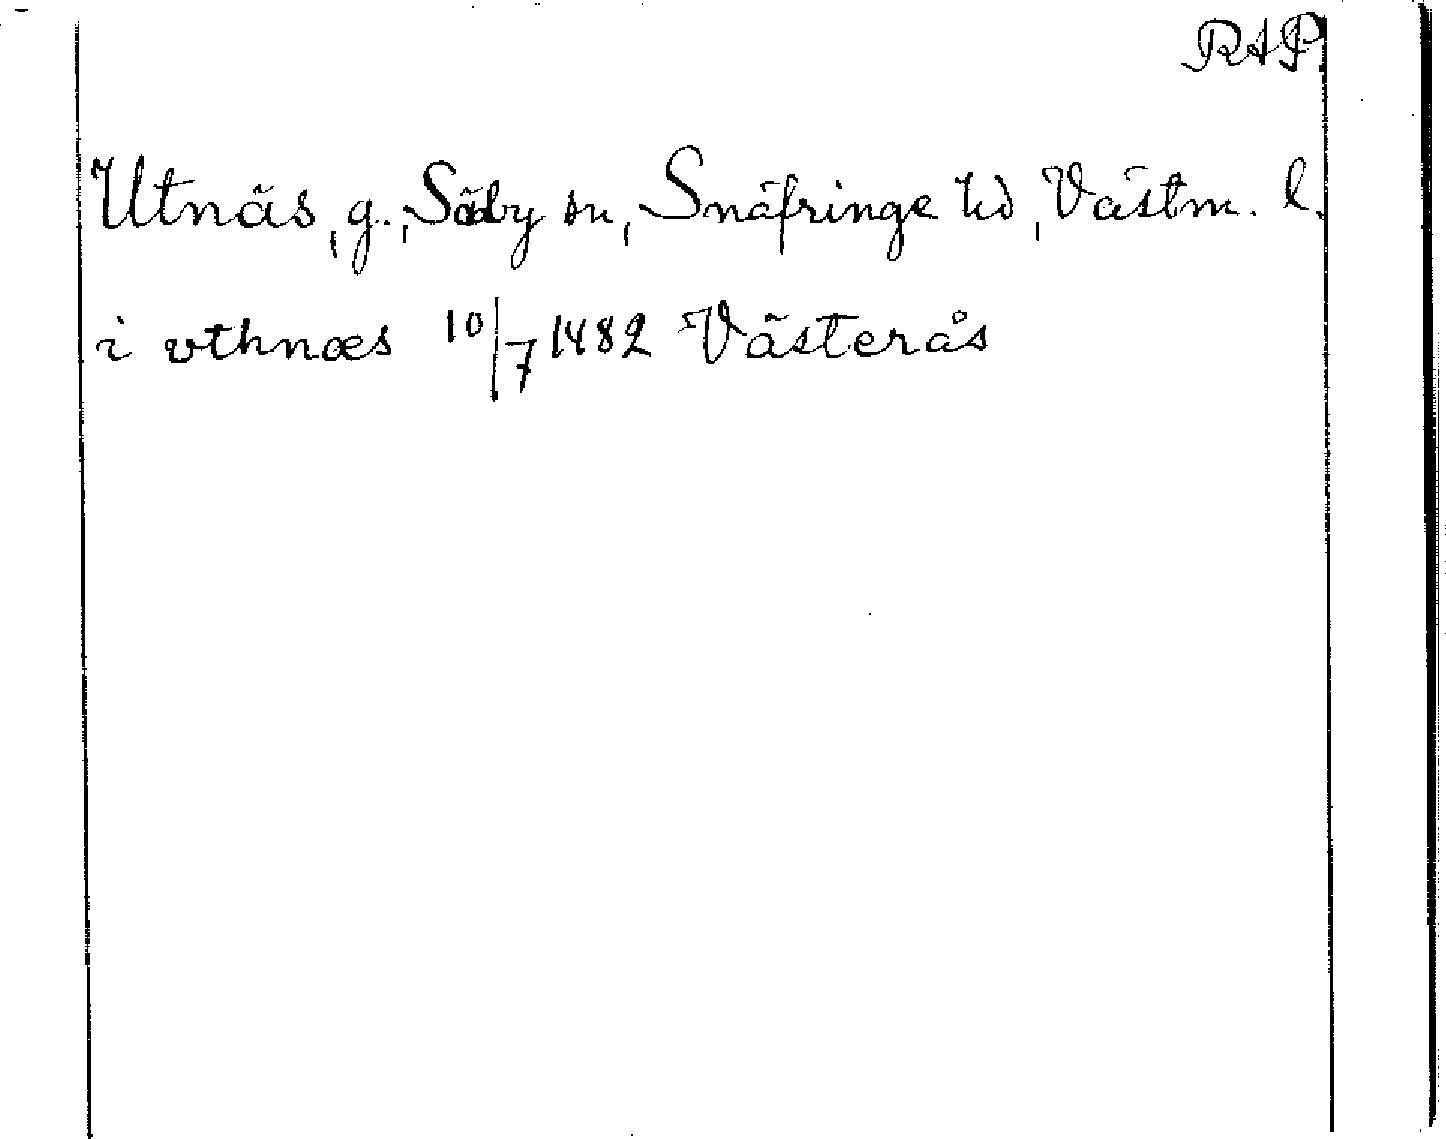 RAP.
Utnäs, g., Säby sn, Snäfringe hd, Västm. l.
i vthnæs 10/7 1482 Västerås